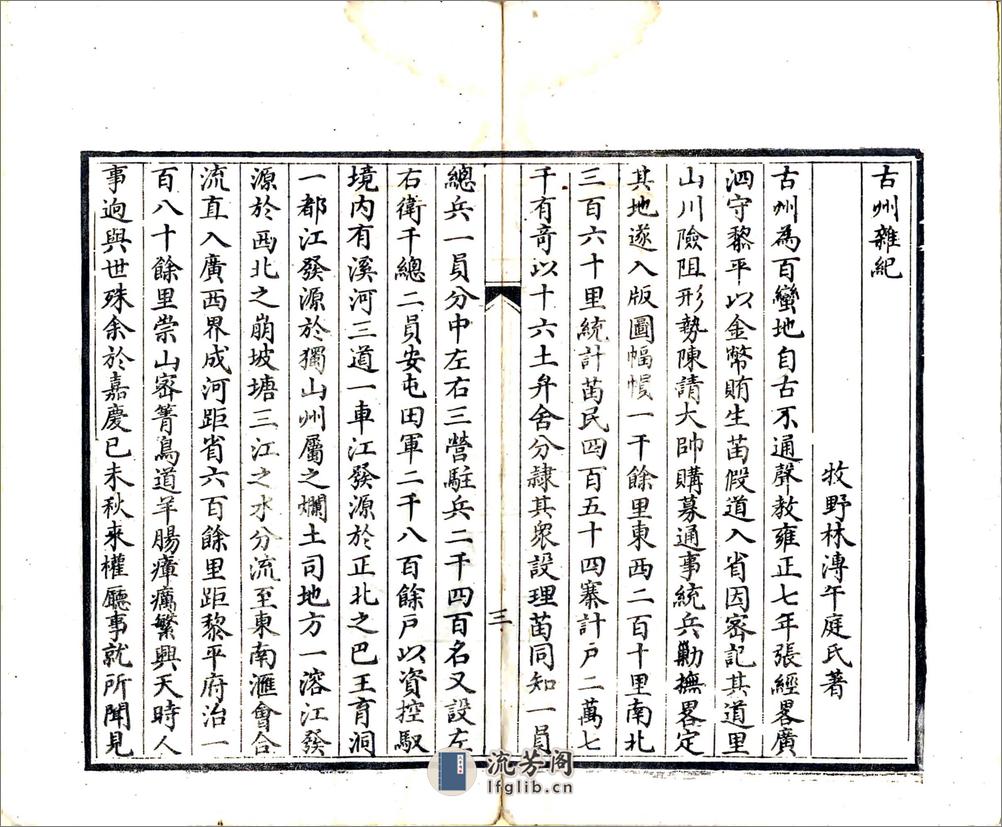 古州雜紀
牧野林溥午庭氏著
古州為百蠻地自古不通聲教雍正七年張經畧廣
泗守黎平以金幣賄生苗假道入省因密記其道里
山川險阻形勢陳請大帥購募通事統兵勦撫畧定
其地遂入版圖幅幔一千餘里東西二百十里南北
三百六十里統計苗民四百五十四寨計戸二萬七
千有奇以十六土弁舍分隷其衆設理苗同知一員
三
總兵一員分中左右三營駐兵二千四百名又設左
右衛千總二員安屯田軍二千八百餘戸以資控馭
境内有溪河三道一車江發源於正北之巴王育洞
一都江發源於獨山州屬之爛土司地方一溶江發
源於西北之崩坡塘三江之水分流至東南滙會合
流直入廣西界成河距省六百餘里距黎平府治一
百八十餘里崇山密箐鳥道羊腸瘴癘繁興天時人
事迥與世殊余於嘉慶已未秋来權廳事就所聞見
流芳阁
lfglib.cn